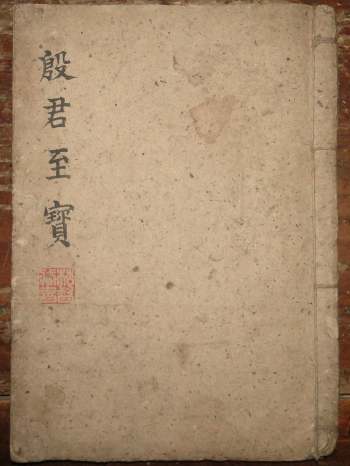 殷君至寶